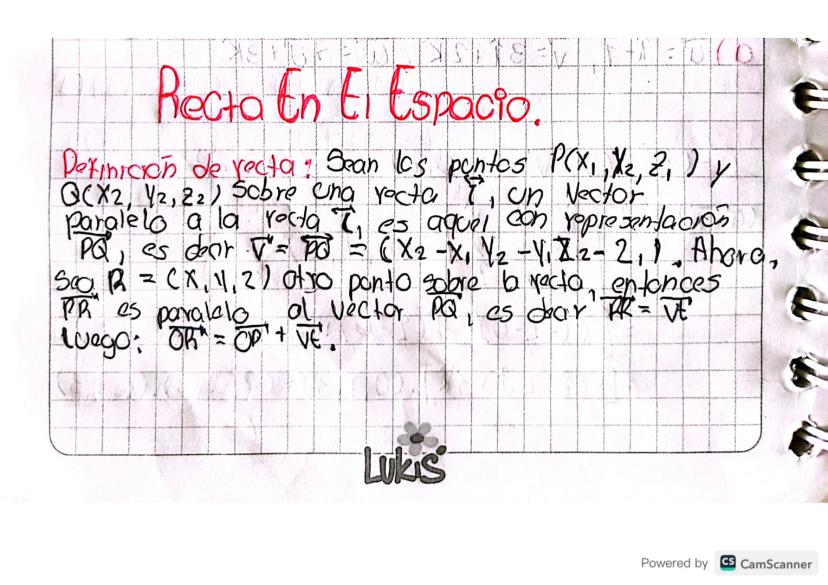 Recta En El Espacio.
Definición de recta: Sean los puntos P(x₁, y₂, z₁) y
Q(x₂, y₂, z₂) sobre una recta L⃗, un vector
paralelo a la recta L⃗, es aquel con representación
P⃗Q, es decir V⃗ = P⃗Q = (x₂-x, y₂-y, z₂-z₁). Ahora,
Sea R = (x, y, z) otro punto sobre la recta, entonces
P⃗R es paralelo al vector P⃗Q, es decir P⃗R = V⃗t
luego: O⃗R = O⃗P + V⃗t.
Lukis
Powered by CS CamScanner